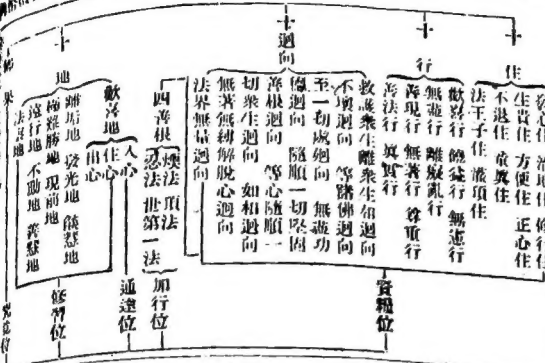 十住
發心住 治地住 修行住
生貴住 方便住 正心住
不退住 童真住
法王子住 灌頂住
十行
歡喜行 饒益行 無恚行
無盡行 離癡亂行
善現行 無著行 尊重行
善法行 真實行
十迴向
救護衆生離衆生相迴向
不壞迴向 等諸佛迴向
至一切處迴向 無盡功
德迴向 隨順一切堅固
善根迴向 等心隨順一
切衆生迴向 如相迴向
無著無縛解脫心迴向
法界無量迴向
資糧位
四善根
煖法 頂法
忍法 世第一法
加行位
十地
歡喜地
入心
住心
出心
通達位
離垢地 發光地 燄慧地
極難勝地 現前地
遠行地 不動地 善慧地
法雲地
修習位
究竟位